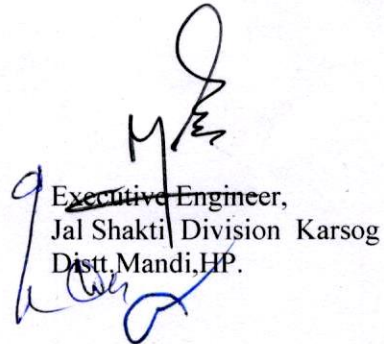 Executive Engineer,
Jal Shakti Division Karsog
Distt,Mandi,HP.